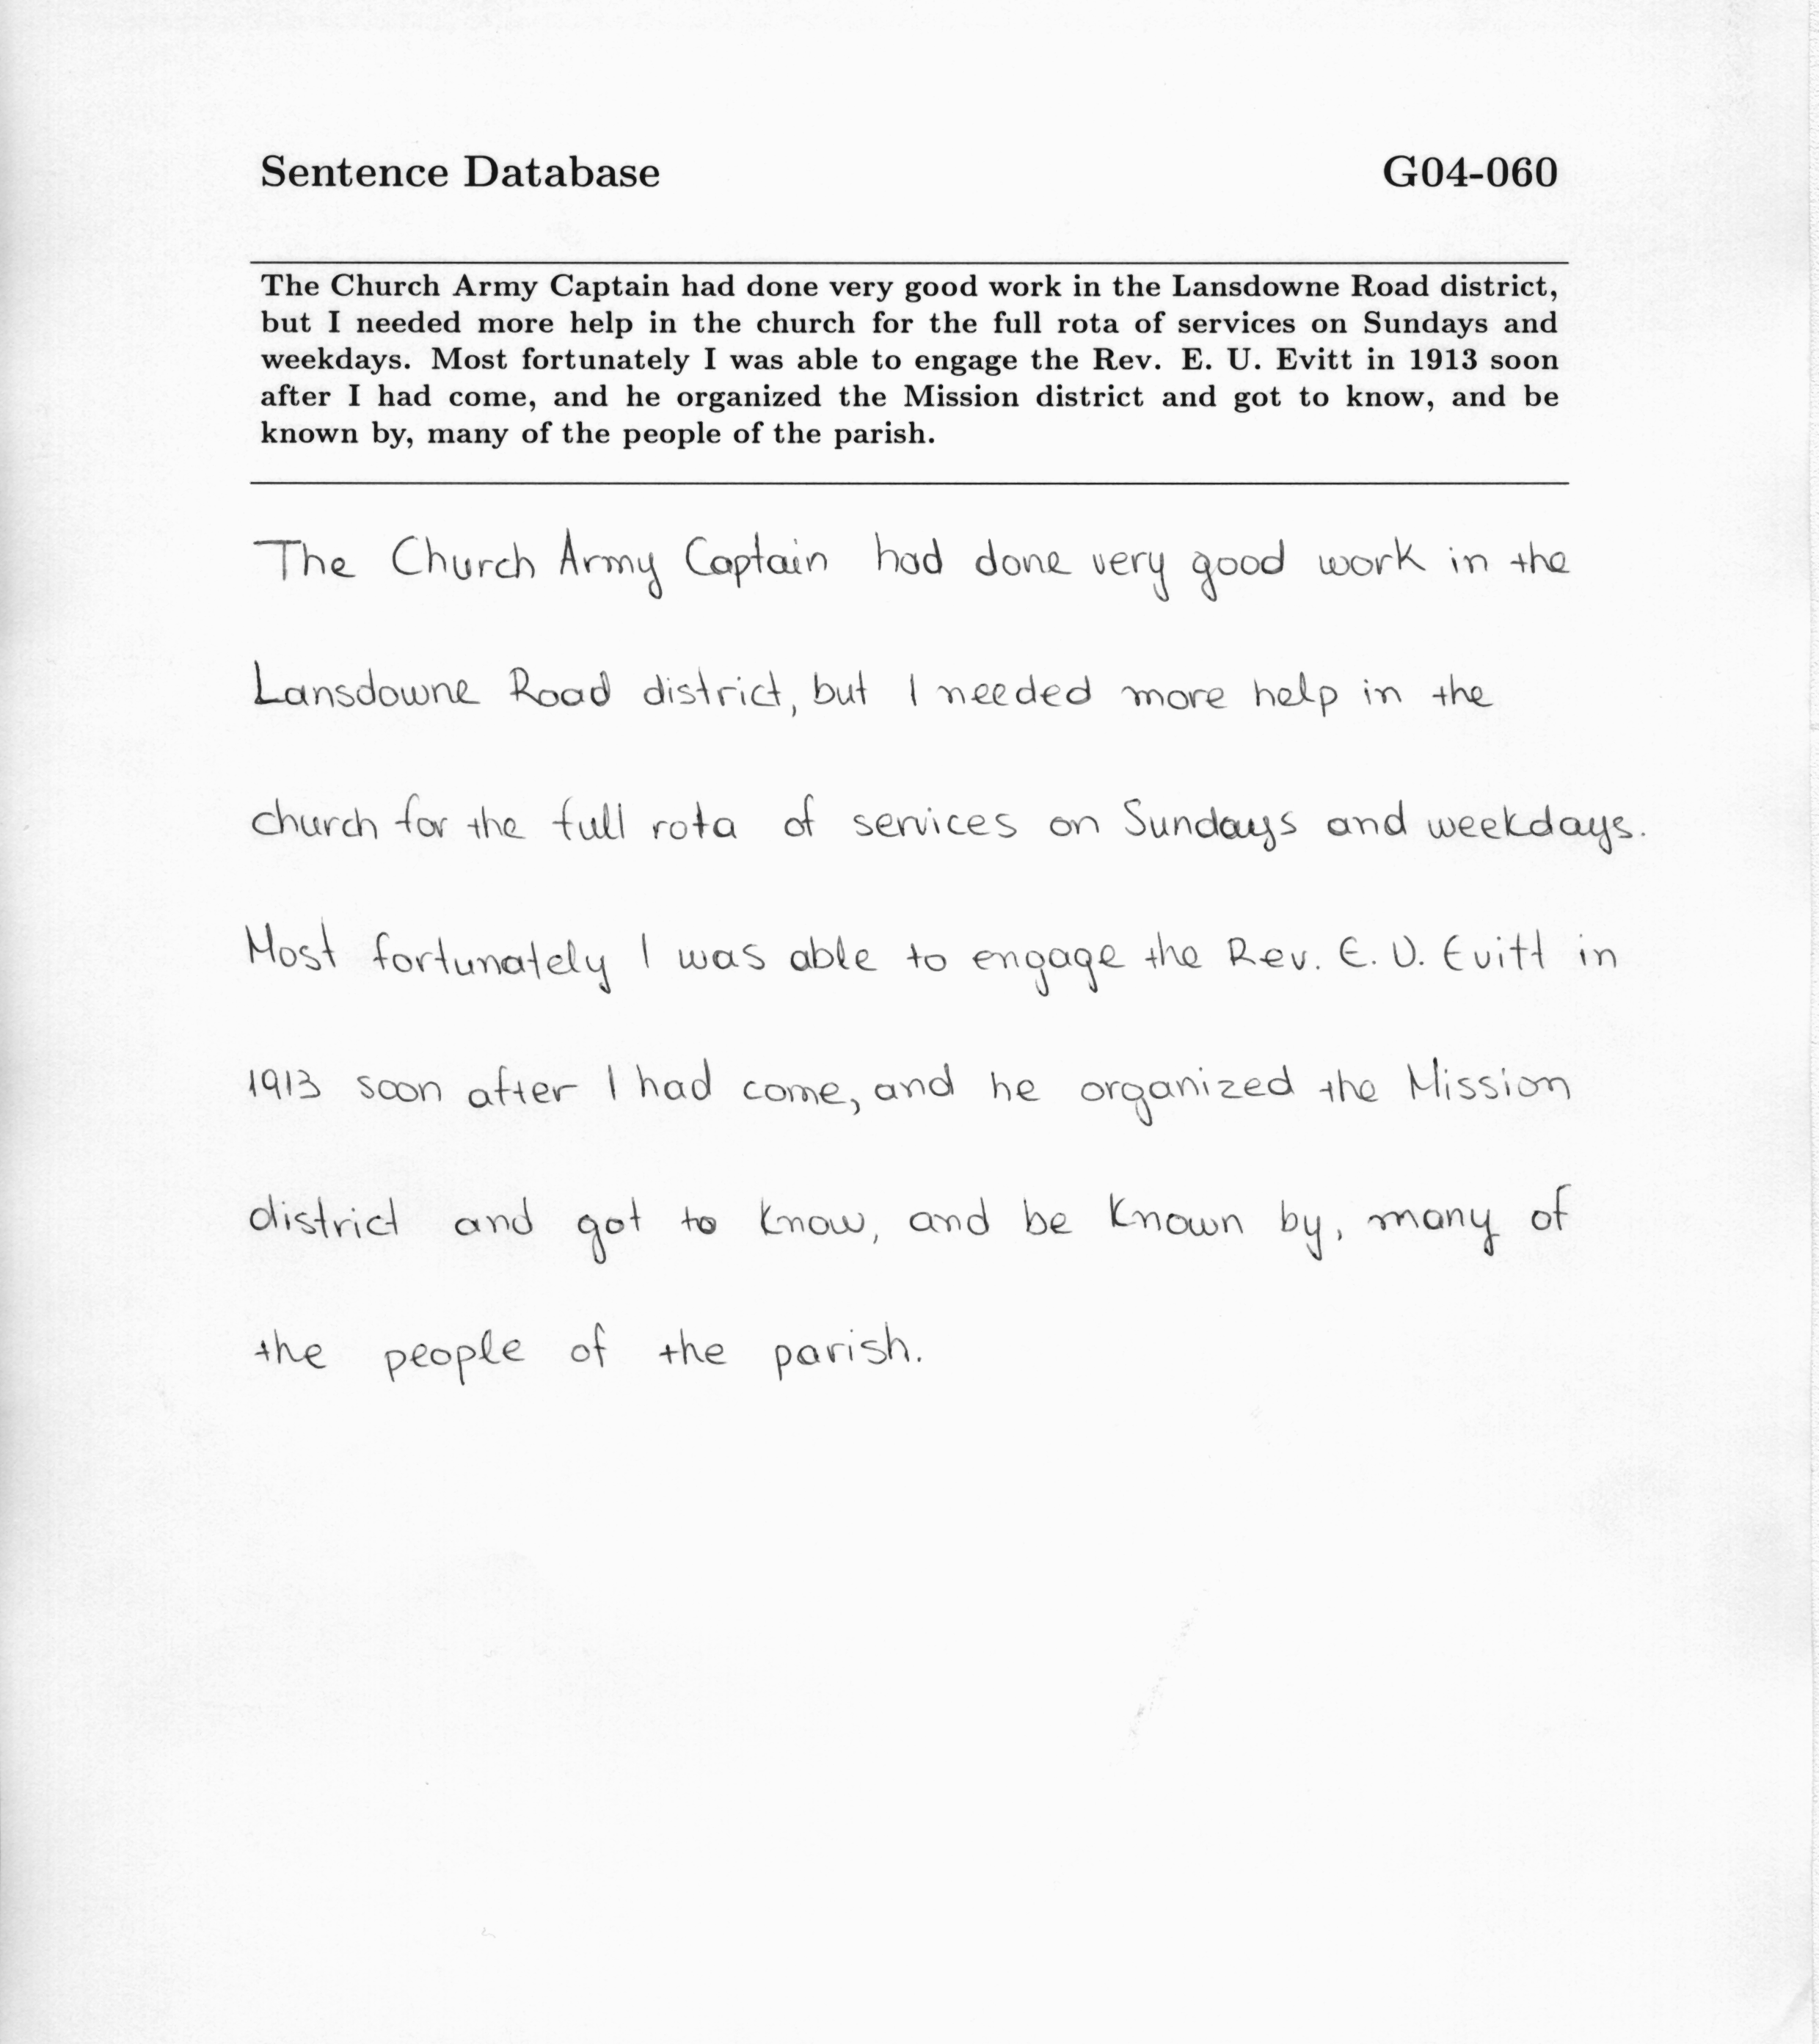 Sentence Database G04-060
The Church Army Captain had done very good work in the Lansdowne Road district,
but I needed more help in the church for the full rota of services on Sundays and
weekdays. Most fortunately I was able to engage the Rev. E. U. Evitt in 1913 soon
after I had come, and he organized the Mission district and got to know, and be
known by, many of the people of the parish.
The Church Army Captain had done very good work in the
Lansdowne Road district, but I needed more help in the
church for the full rota of services on Sundays and weekdays.
Most fortunately I was able to engage the Rev. E. U. Evitt in
1913 soon after I had come, and he organized the Mission
district and got to know, and be known by, many of
the people of the parish.